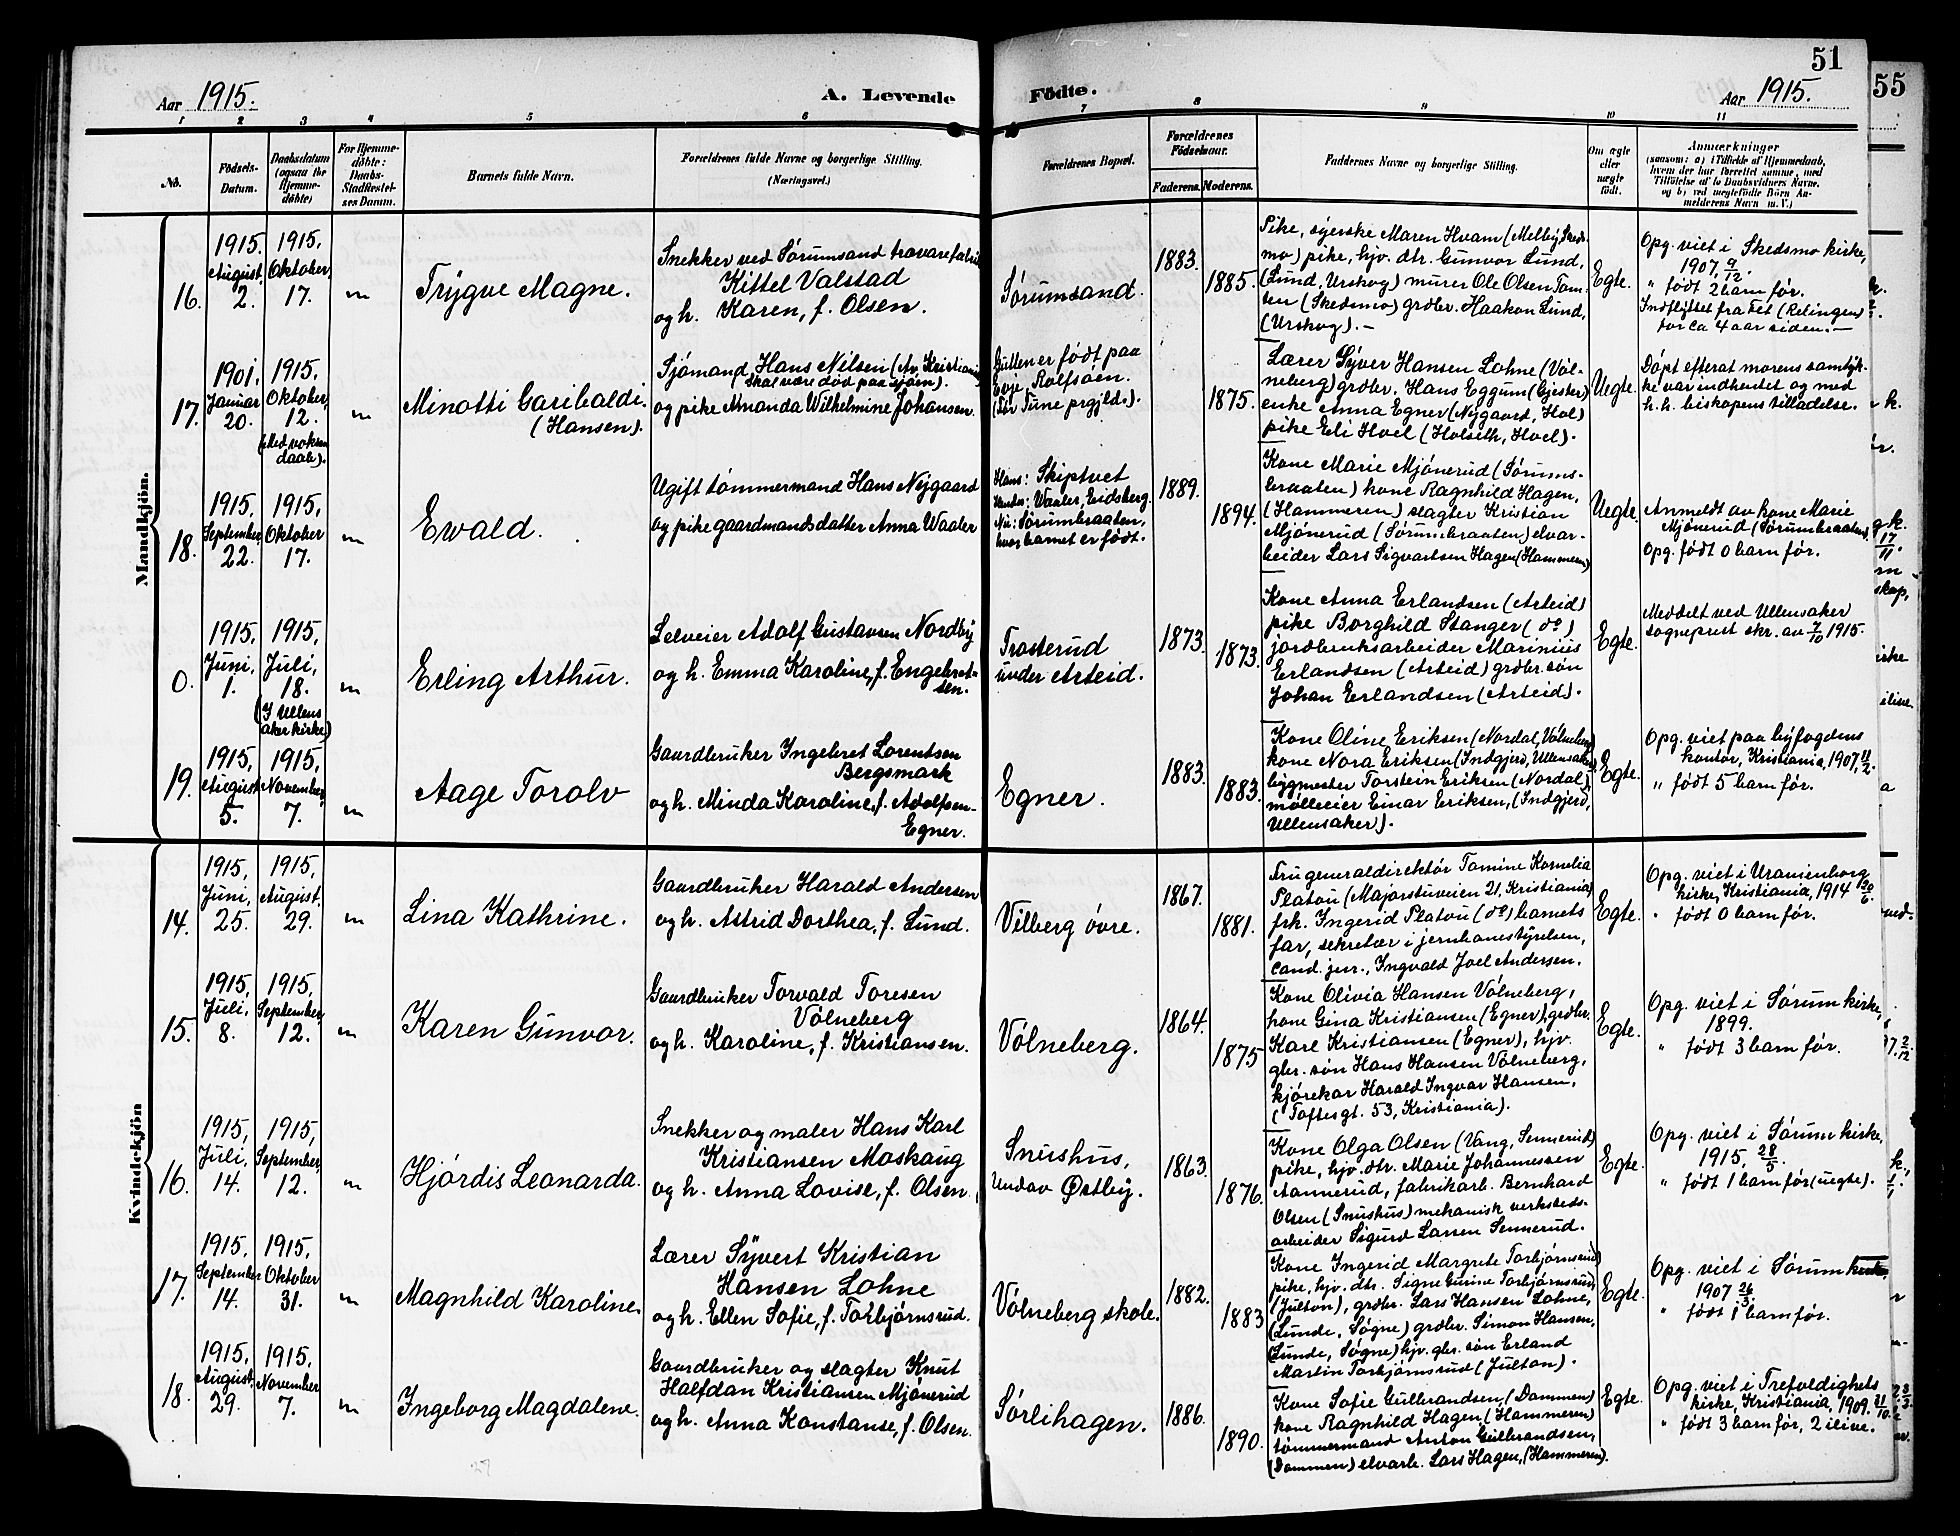 51
55
Aar 1915.
A. Levende
Fødte.
Aar 1915.
1 2 3 4 5 6 7 8 9 10 11
No.
Fødsels-
Datum.
Daabsdatum
(ogsaa for
Hjemme-
døbte)
For Hjemme-
døbte:
Daabs-
Stadfæstel-
ses Datum.
Barnets fulde Navn.
Forældrenes fulde Navne og borgerlige Stilling.
(Næringsvei.)
Forældrenes Bopæl.
Forældrenes
Fødselsaar.
Faderens. Moderens.
Faddernes Navne og borgerlige Stilling.
Om ægte
eller
uægte
født.
Anmærkninger
(saasom: a) i Tilfælde af Hjemmedaab,
hvem der har forrettet samme, med
Tilføielse af to Daabsvidners Navne,
og b) ved uægtefødte Børn An-
melderens Navn m. V.)
Mandkjøn.
16.
1915.
August
2.
1915,
Oktober,
17.
"
Trygve Magne.
Snekker ved Sørumsand travarefabrik
Kittel Valstad
og h. Karen, f. Olsen.
Sørumsand.
1883.
1885.
Pike, syerske Maren Hvam (Melby, Skeds-
mo) pike, hjv. dtr. Gunvor Lund,
(Lund, Urskog) murer Ole Olsen Tom-
ten (Skedsmo) grdbr. Haakon Lund,
(Urskog). –
Egte.
Opg. viet i Skedsmo kirke,
1907, 9/12.
" født 2 barn før.
Indflyttet fra Fet (Relingen)
for ca 4 aar siden. –
17.
1901.
Januar
20.
1915.
Oktober,
12.
(Med voksen
daab).
"
Minotti Garibaldi.
(Hansen).
Sjømand, Hans Nilsen (Av. Kristiania
skal være død paa sjøen).
og pike Amanda Wilhelmine Johansen.
Gutten er født paa
Evje, Rolfsøen.
(Før Tune prgjld.).
1875.
Lærer Syver Hansen Lohne (Vøl-
neberg) grdbr. Hans Eggum (Gjester)
enke Anna Egner (Nygaard, Hol)
pike Eli Hoel (Holseth, Hoel).
Uegte.
Døpt efterat morens samtyk-
ke var indhentet og med
h. h. biskopens tilladelse.
18.
1915.
September,
22.
1915.
Oktober
17.
"
Ewald.
Ugift tømmermand Hans Nygaard
og pike gaardmandsdatter Anna Waaler
Hans: Skiptvet
Hendes: Vaaler, Eidsberg.
Nu: Sørumbraaten,
hvor barnet er født.
1889.
1894.
Kone Marie Mjønerud (Sørums-
braaten) kone Ragnhild Hagen,
(Hammeren) slagter Kristian
Mjønerud (Sørumbraaten) elvar-
beider Lars Sigvartsen Hagen (Hammeren)
Uegte.
Anmeldt av kone Marie
Mjønerud (Sørumbraaten).
Opg. født 0 barn før.
0.
1915,
Juni,
1.
1915,
Juli,
18.
(I Ullens
aker kirke)
"
Erling Arthur.
Selveier Adolf Gustavsen Nordby
og h. Emma Karoline, f. Engebret-
sen.
Trosterud
under Arteid.
1873.
1873.
Kone Anna Erlandsen (Arteid)
pike Borghild Stanger (do)
jordbruksarbeider Marinius
Erlandsen (Arteid) grdbr. søn
Johan Erlandsen (Arteid).
Egte.
Meddelt ved Ullensaker
sogneprest skr. av 7/10 1915.
19.
1915,
August
5.
1915,
November,
7.
"
Aage Torolv
Gaardbruker Ingebret Lorentsen
Bergsmark
og h. Minda Karoline, f. Adolfsen-
Egner.
Egner.
1883.
1883.
Kone Oline Eriksen (Nordal, Vølneberg)
kone Nora Eriksen (Indgjerd, Ullensaker)
bygmester Torstein Eriksen (Nordal),
mølleeier Einar Eriksen, (Indgjerd,
Ullensaker).
Egte.
Opg. viet paa byfogdens
kontor, Kristiania, 1907, 11/2.
" født 5 barn før.
Kvindekjøn
14.
1915,
Juni,
25.
1915,
August.
29.
"
Lina Kathrine.
Gaardbruker Harald Andersen
og h. Astrid Dorthea, f. Lund.
Vilberg øvre.
1867.
1881.
Fru generaldirektør Tomine Kornelia
Platou (Majorstuveien 21, Kristiania)
frk. Ingerid Platou (do) barnets
far, sekretær i jernbanestyrelsen,
cand. jur., Ingvald Joel Andersen.
Egte.
Opg. viet i Uranienborg
kirke, Kristiania, 1914 20/6.
" født 0 barn før.
15.
1915,
Juli,
8.
1915.
September,
12.
"
Karen Gunvor.
Gaardbruker Torvald Toresen
Vølneberg
og h. Karoline, f. Kristiansen.
Vølneberg.
1864.
1875
Kone Olivia Hansen Vølneberg,
kone Gina Kristiansen (Egner), grdbr.
Karl Kristiansen (Egner), hjv.
gbr. søn Hans Hansen Vølneberg,
kjørekar Harald Ingvar Hansen,
(Toftesgt. 53, Kristiania).
Egte.
Opg. viet i Sørum kirke,
1899.
" født 3 barn før.
16.
1915,
Juli,
14.
1915,
September,
12.
"
Hjørdis Leonarda.
Snekker og maler Hans Karl
Kristiansen Moskaug
og h. Anna Lovise, f. Olsen.
Snushus,
under Østby.
1863.
1876.
Kone Olga Olsen (Vang, Sennerud)
pike, hjv. dtr. Marie Johannessen
Aannerud, fabrikarb. Bernhard
Olsen (Snushus) mekanisk verksteds-
arbeider Sigurd Larsen Sennerud.
Egte.
Opg. viet i Sørum kirke,
1915, 28/5.
" født 1 barn før (uegte).
17.
1915.
September
14.
1915,
Oktober
31.
"
Magnhild Karoline.
Lærer Syvert Kristian
Hansen Lohne
og h. Ellen Sofie, f. Torbjørnsrud.
Vølneberg skole.
1882.
1883
Kone Ingerid Margrete Torbjørnsrud)
pike, hjv. dtr. Signe Gunine Torbjørnsrud,
(Julton), grdbr. Lars Hansen Lohne,
(Lunde, Søgne) grdbr. Simon Hansen,
(Lunde, Søgne) hjv. gbr. søn Erland
Martin Torbjørnsrud (Julton).
Egte.
Opg. viet i Sørum kirke
1907 26/3.
" født 1 barn før.
18.
1915.
August.
29.
1915.
November
7.
"
Ingeborg Magdalene.
Gaardbruker og slagter Knut
Halfdan Kristiansen Mjønerud
og h. Anna Konstanse, f. Olsen.
Sørlihagen.
1886.
1890.
Kone Sofie Gulbrandsen, (Dammen)
kone Ragnhild Hagen (Hammeren)
tømmermand Anton Gulbrandsen,
(Dammen) elvarb. Lars Hagen, (Hammeren).
Egte.
Opg. viet i Trefoldighets
kirke, Kristiania, 1909. 31/10.
" født 3 barn før, 2 ilive.
27